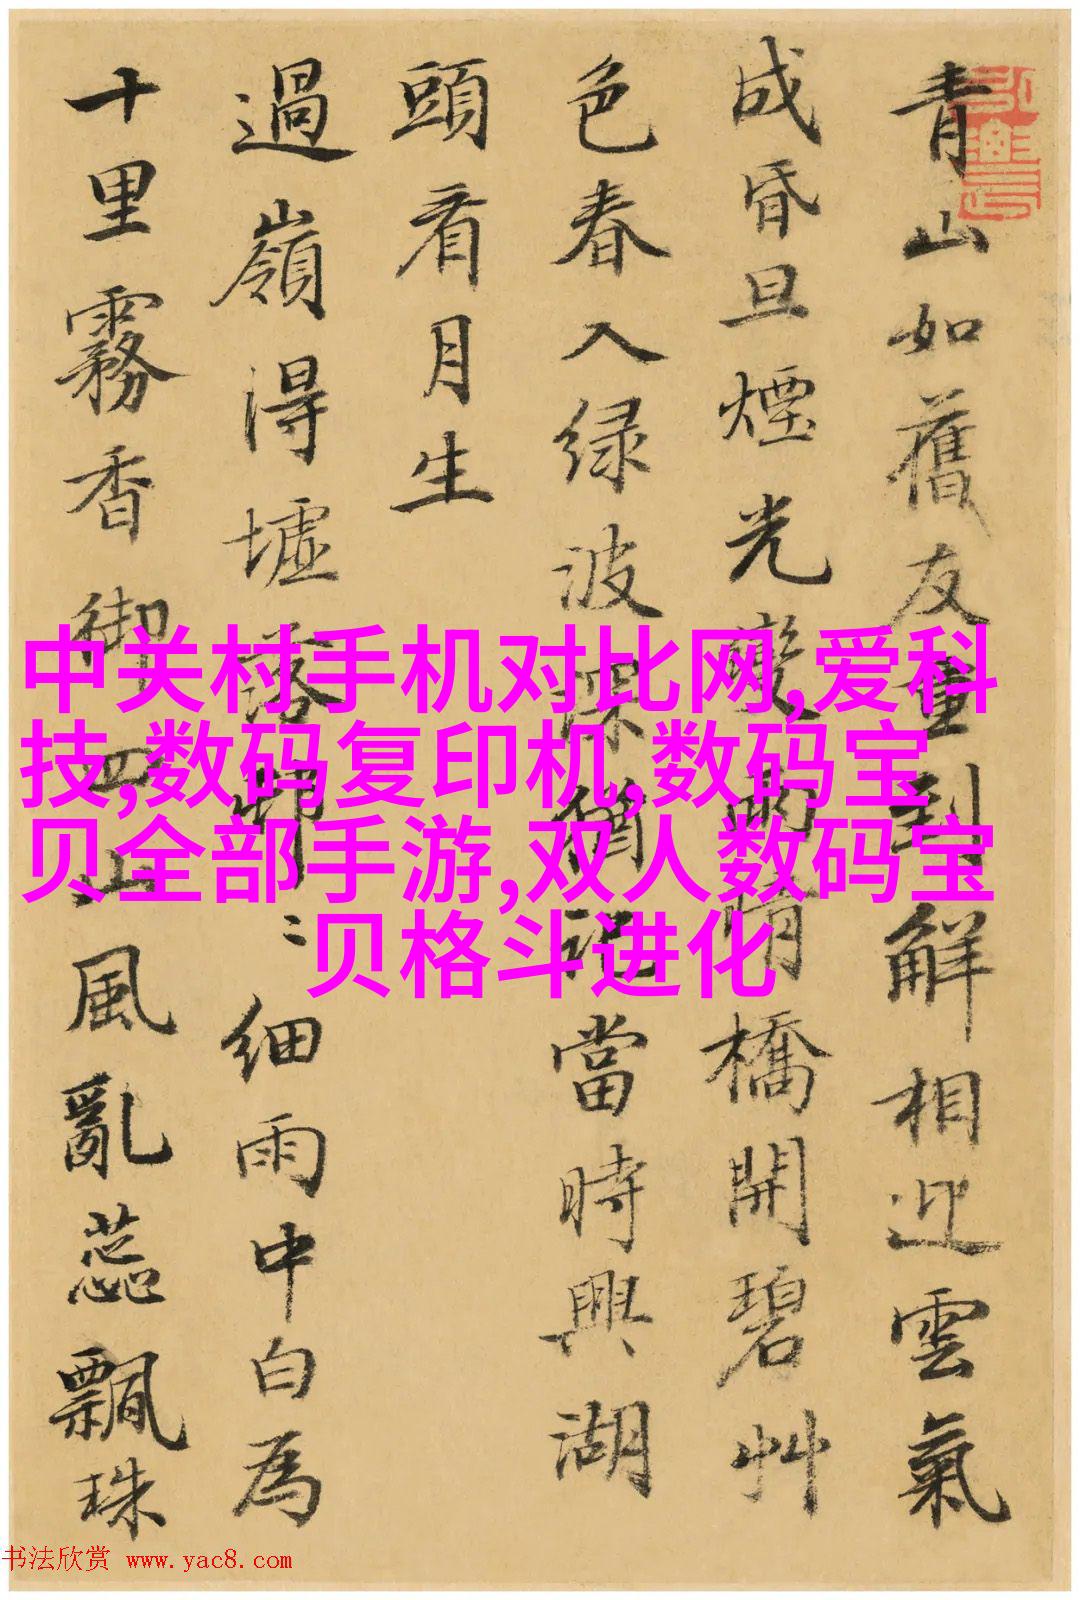 青山如舊友重到解相迎雲氣
成昏旦煙光變雨晴橋開碧艸
色春入绿波深猶記當時興湖
頭看月生
過嶺得墟落邨〻細雨中白為
十里霧香御四山風亂蕊飄珠
中关村手机对比网,爱科
技,数码复印机,数码宝
贝全部手游,双人数码宝
贝格斗进化
书法欣赏 www.yac8.com